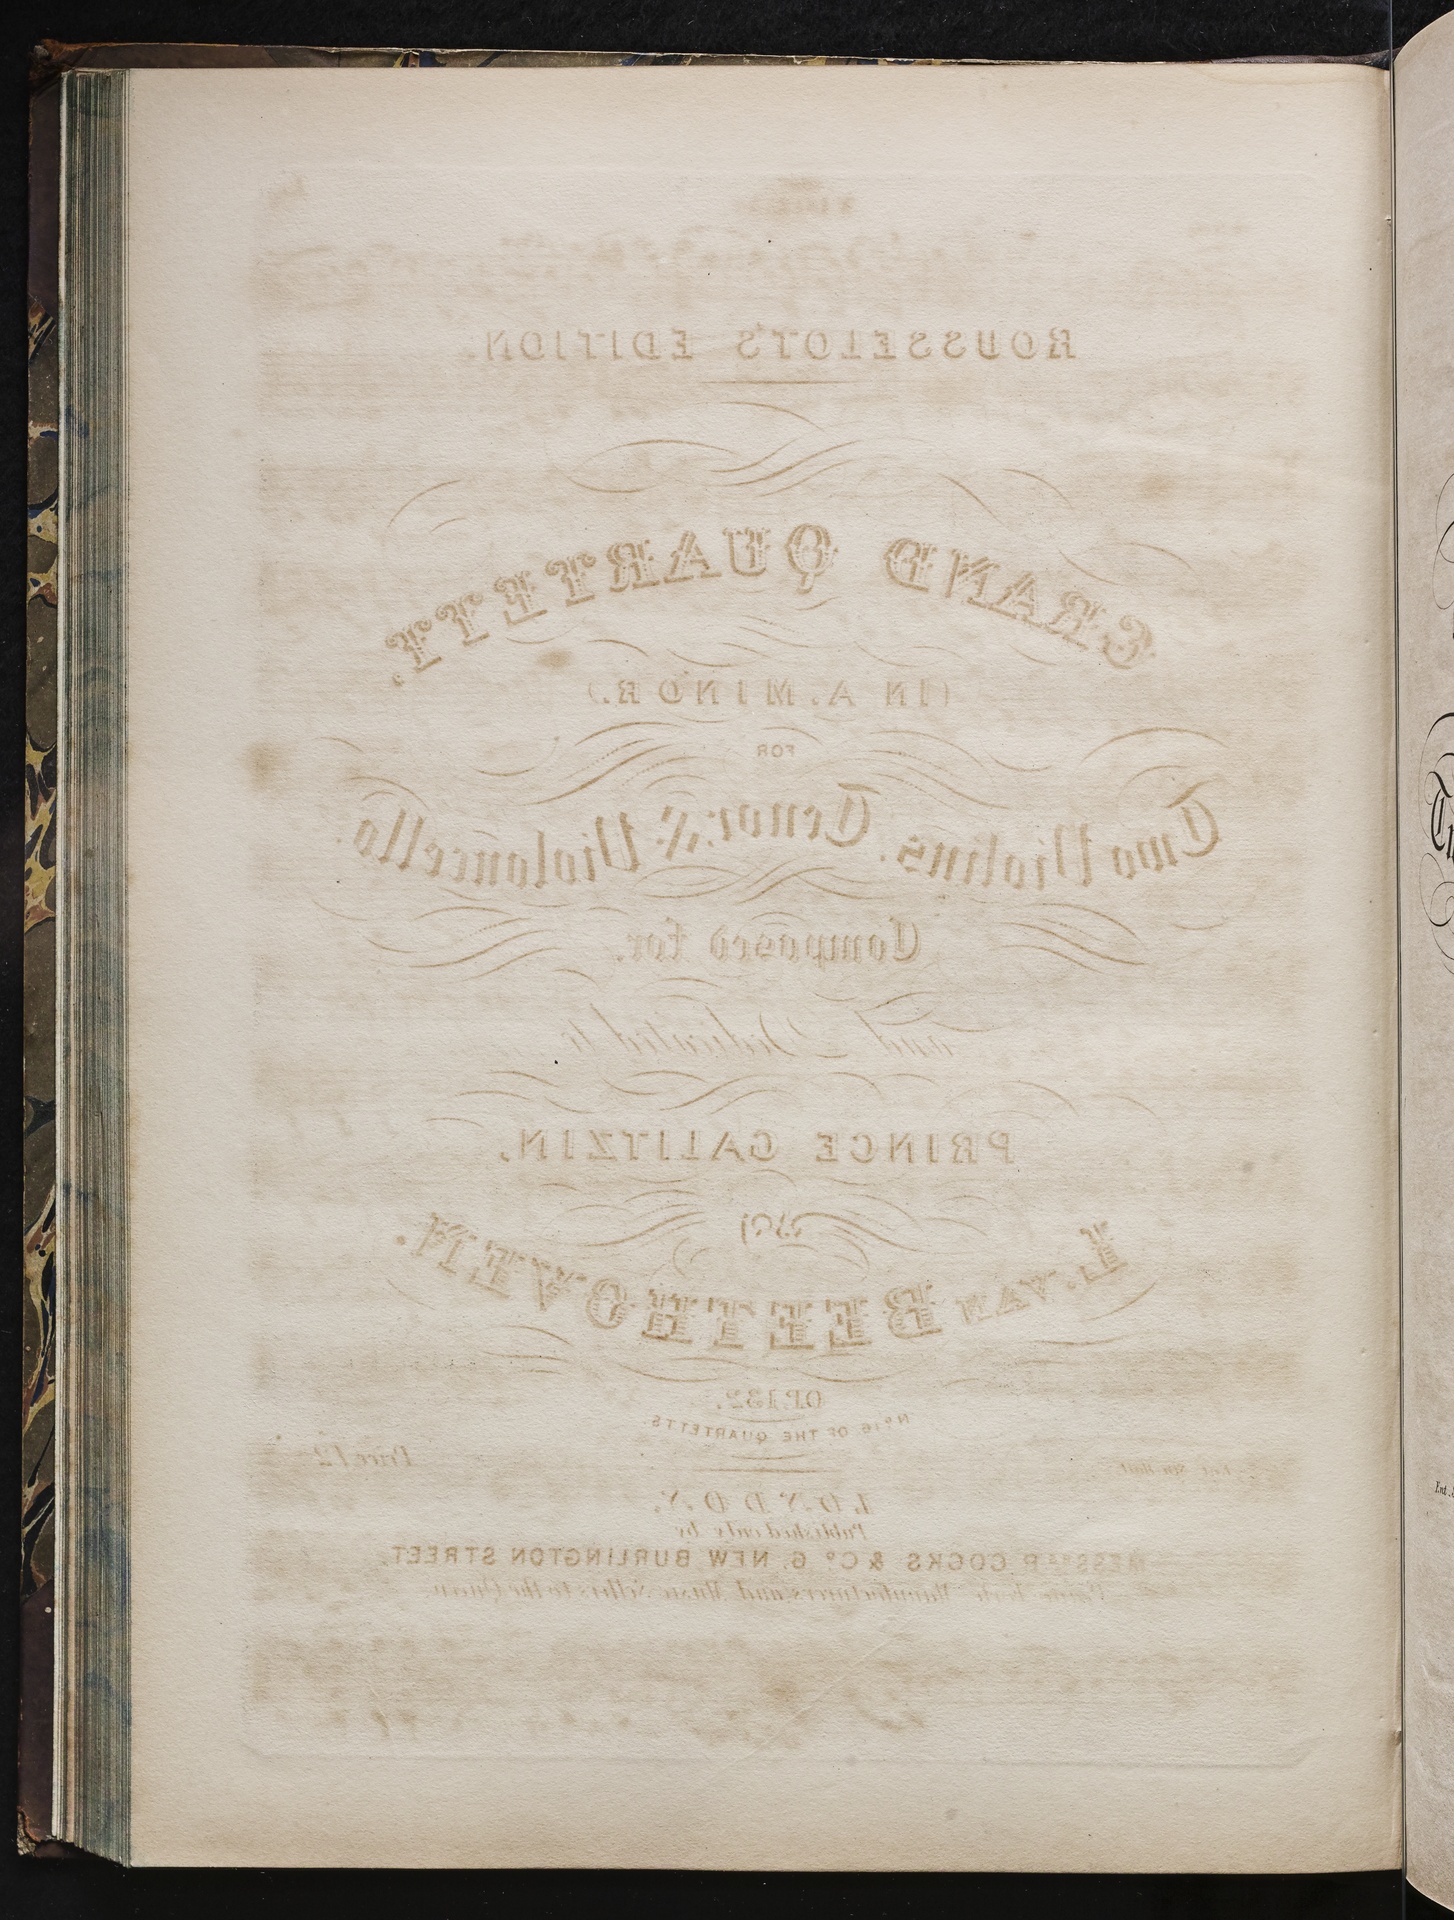 ROUSSELOT'S EDITION.
GRAND QUARTETT.
(IN A. MINOR.)
FOR
Two Violins, Tenor, & Violoncello.
Composed for,
and Dedicated to
PRINCE GALITZIN,
BY
L. VAN BEETHOVEN.
OP. 132.
No. 16 OF THE QUARTETTS.
Ent. Sta. Hall. Price 12
LONDON,
Published only by
MESSRS. R. COCKS & Co. 6, NEW BURLINGTON STREET.
Manufacturers and Music Sellers to the Queen.